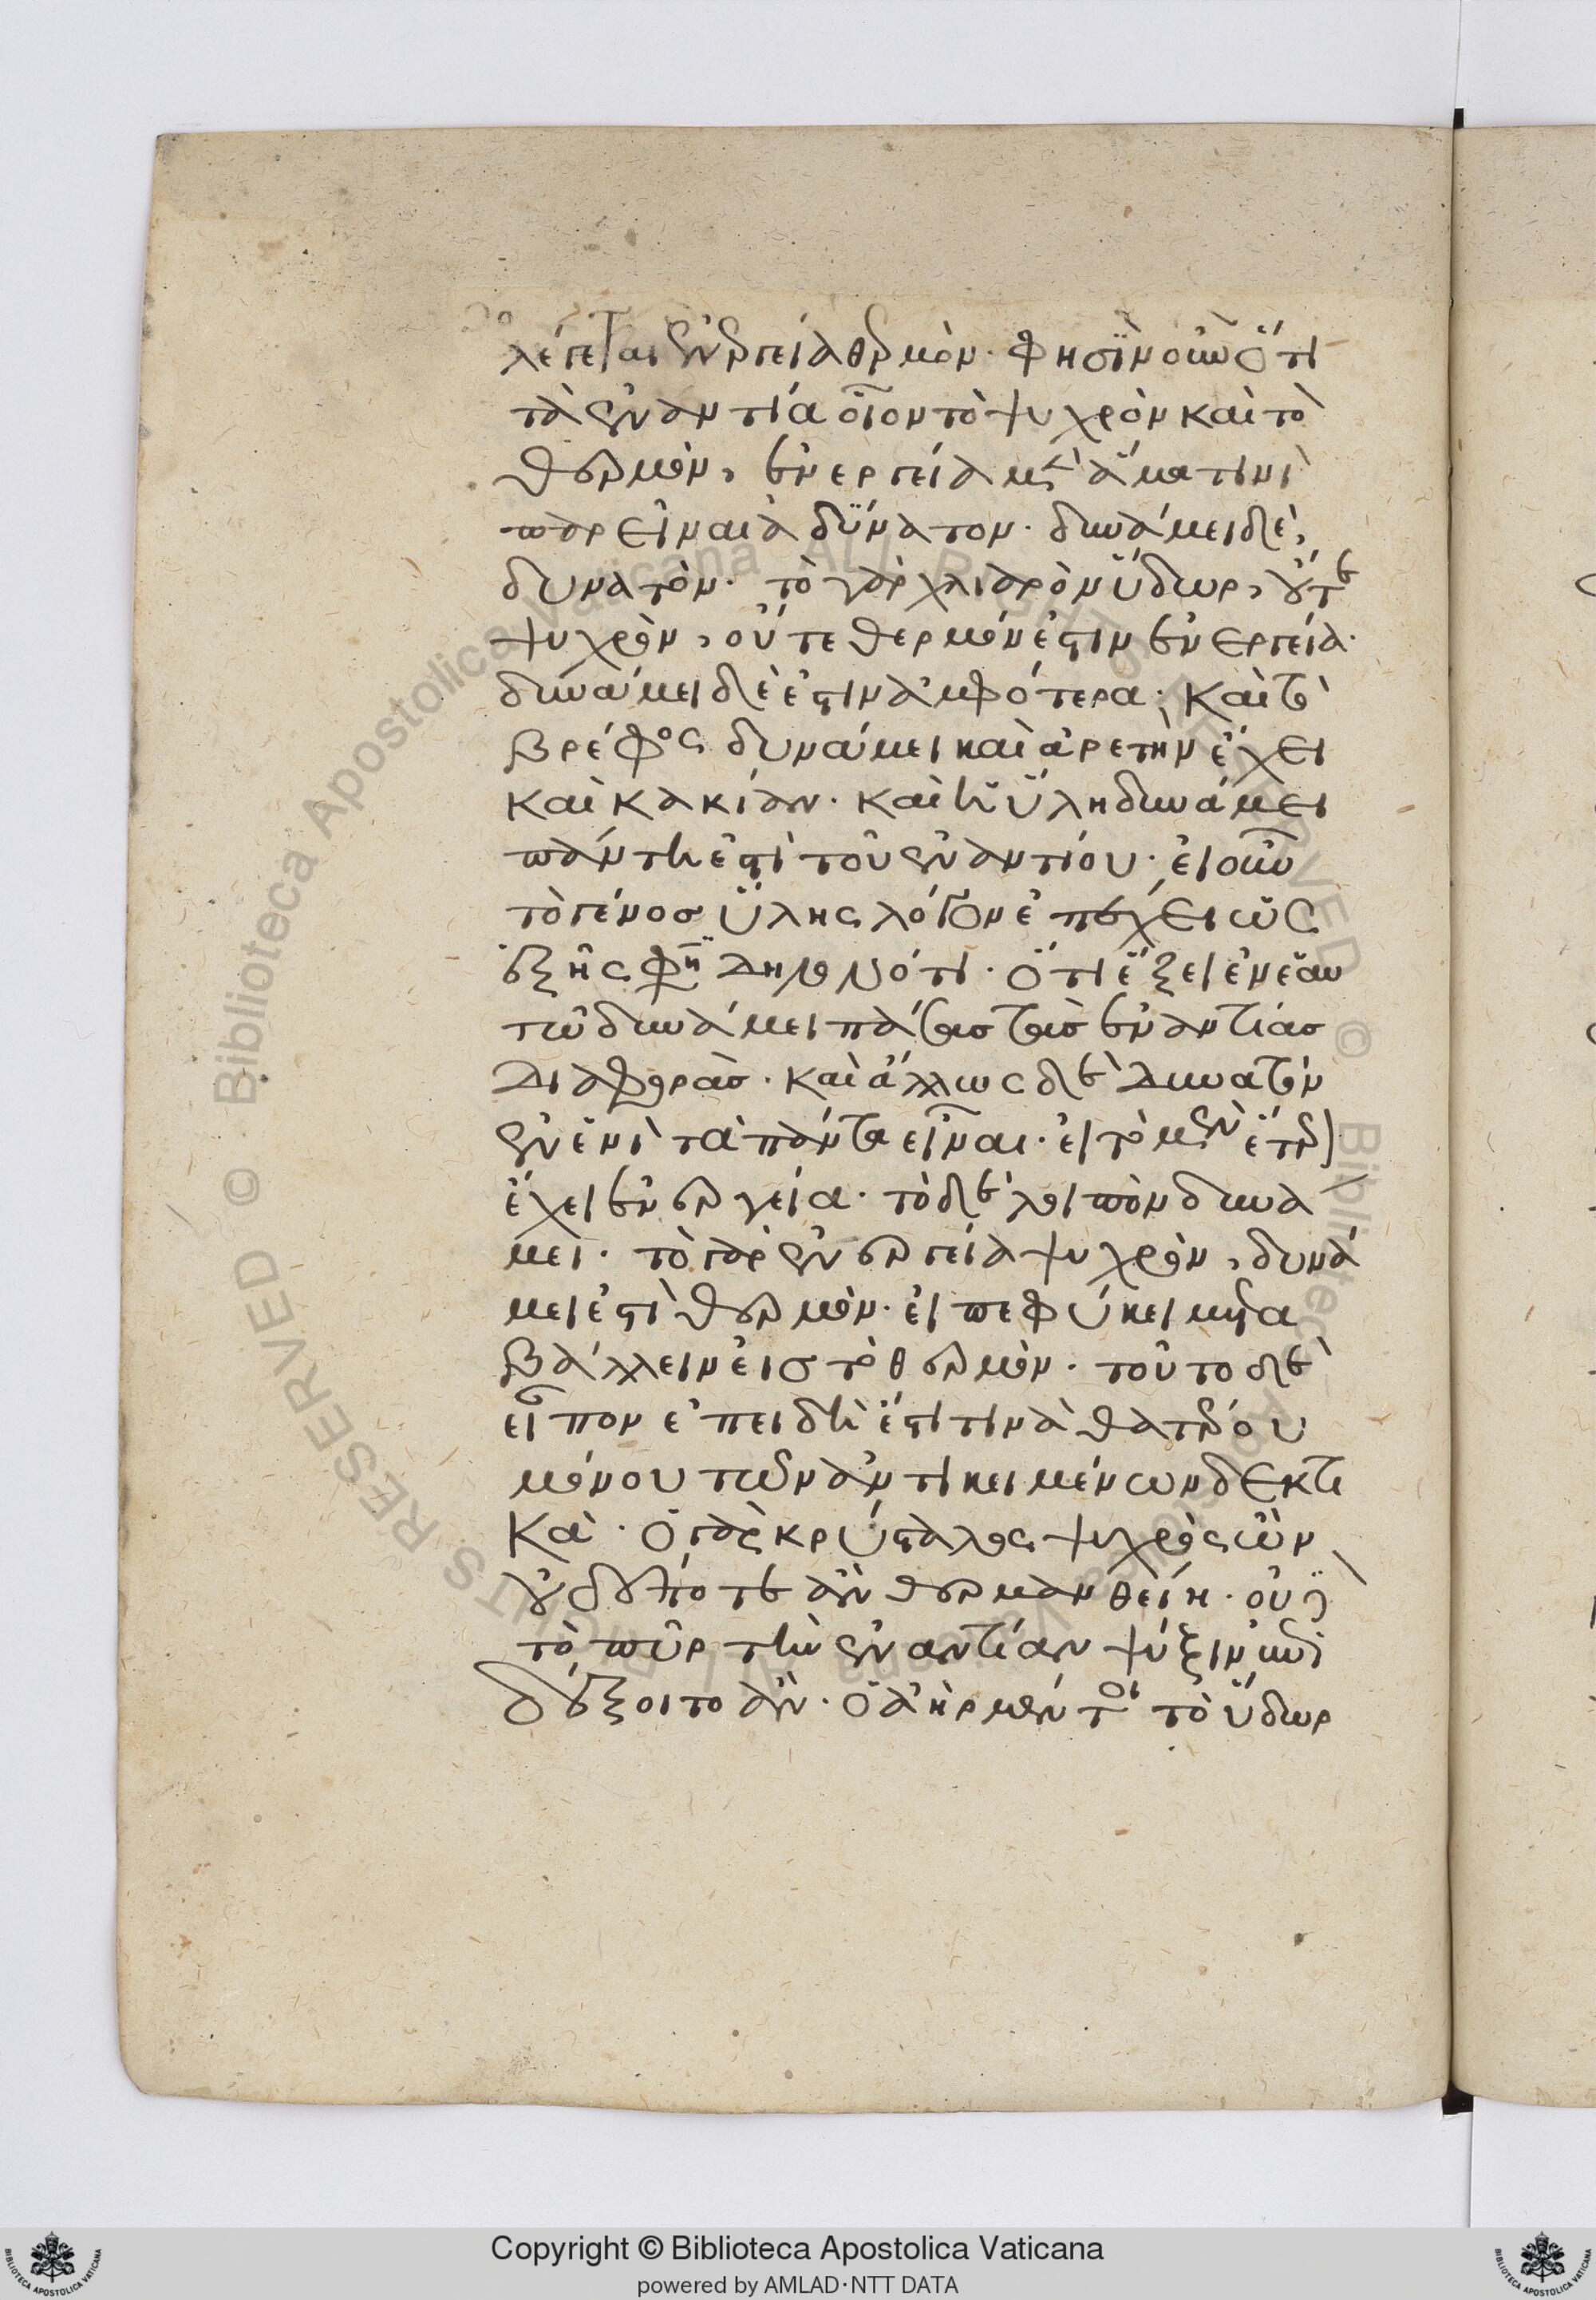 λέγεται ἐνεργεία θερμόν· φησὶν οὖν ὅτι
τὰ ἐναντία οἷον τὸ ψυχρὸν καὶ τὸ
θερμὸν, ἐνεργεία μὲν ἅμα τινὶ
παρεῖναι ἀδύνατον· δυνάμει δὲ,
δυνατόν· τὸ γὰρ χλιαρὸν ὕδωρ, οὔτε
ψυχρὸν, οὔτε θερμόν ἐστιν ἐνεργεία·
δυνάμει δὲ ἐστιν ἀμφότερα· καὶ τὸ
βρέφος δυνάμει καὶ ἀρετὴν ἔχει
καὶ κακίαν· καὶ ἡ ὕλη δυνάμει
πάντη ἐστὶ τοῦ ἐναντίου· εἰ οὖν
τὸ γένος ὕλης λόγον ἐπέχει ὡς
ἑξῆς φη δηλονότι· ὅτι ἕξει ἐν ἑαυ
τῶ δυνάμει πάσας τὰς ἐναντίας
διαφοράς· καὶ ἄλλως δὲ δυνατὸν
ἐν ἑνὶ τὰ πάντα εἶναι· εἰ τὸ μὲν ἕτερον
ἔχει ἐνεργεία· τὸ δὲ λοιπὸν δυνά
μει· τὸ γὰρ ἐνεργεία ψυχρὸν, δυνά
μει ἐστὶ θερμόν· εἰ πεφύκει μετα
βάλλειν εἰς τὸ θερμόν· τοῦτο δὲ
εἶπον ἐπειδὴ ἔστι τινὰ θατέρου
μόνου τῶν ἀντικειμένων δεκτι
κά· ὁ γὰρ κρύσταλος ψυχρὸς ὢν
οὐδέποτε ἂν θερμανθείη· οὐδὲ
τὸ πῦρ τὴν ἐναντίαν ψύξιν
δέξοιτο ἄν· ὁ ἀὴρ μέντοι τὸ ὕδωρ